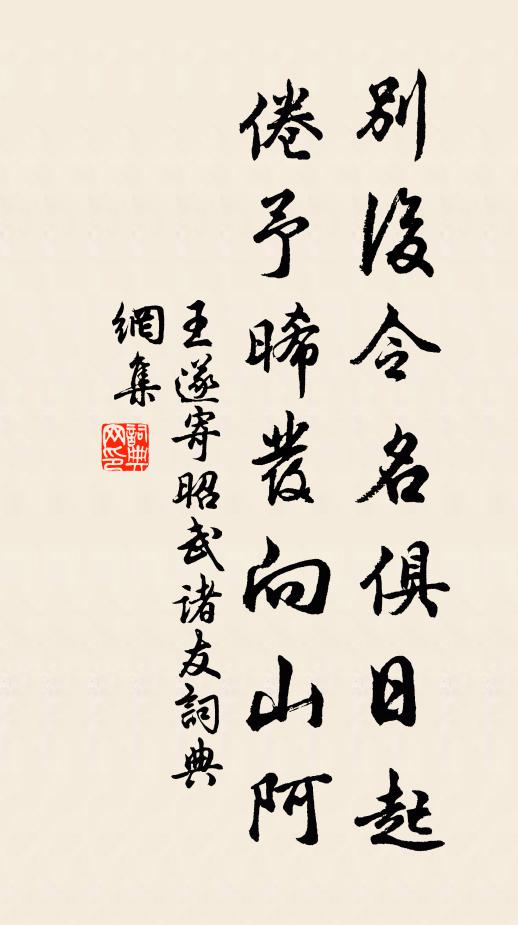 別後令名俱日起
倦予晞發向山阿
王遂寄昭武诸友詞典
網集
詞典網印